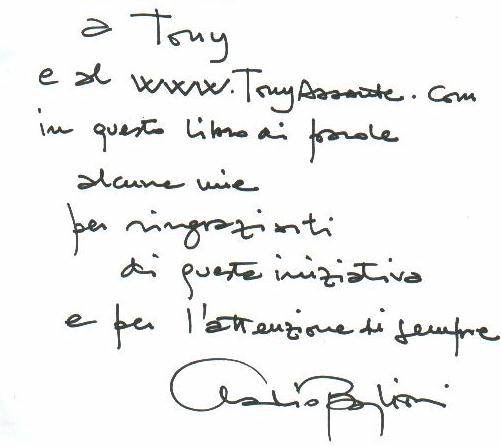 a Tony
e al www.TonyAssante.com
in questo libro di parole
alcune mie
per ringraziarti
di questa iniziativa
e per l'attenzione di sempre
Claudio Baglioni